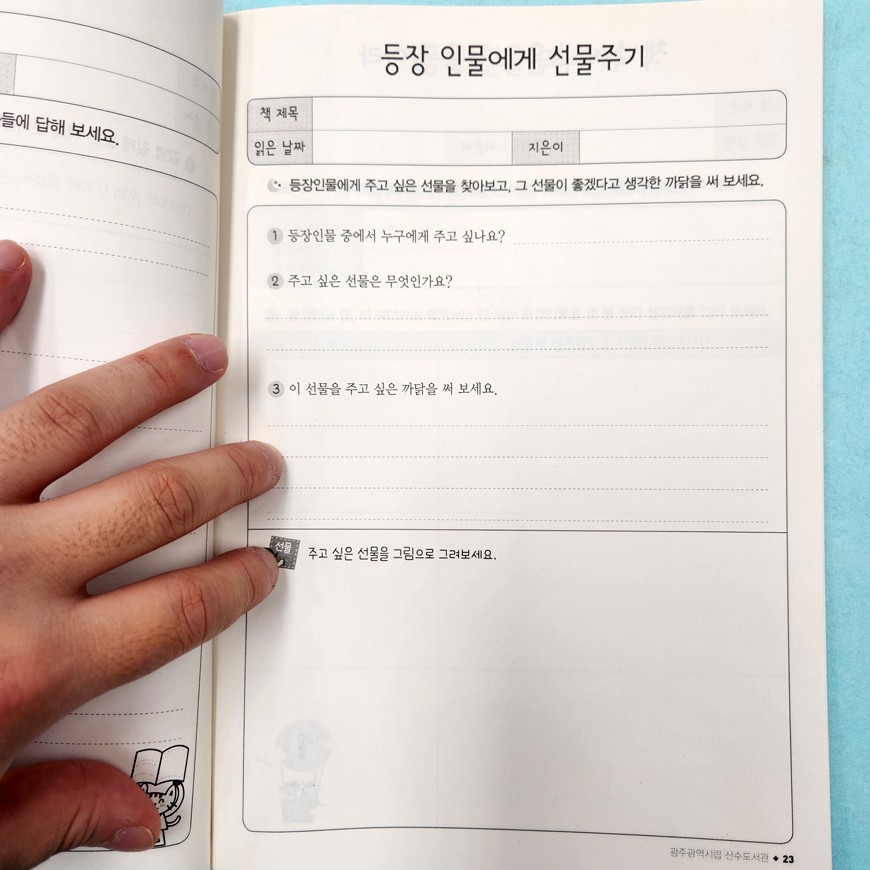 들에 답해 보세요.
등장 인물에게 선물주기
책 제목
읽은 날짜
지은이
등장인물에게 주고 싶은 선물을 찾아보고, 그 선물이 좋겠다고 생각한 까닭을 써 보세요.
1 등장인물 중에서 누구에게 주고 싶나요?
2 주고 싶은 선물은 무엇인가요?
3 이 선물을 주고 싶은 까닭을 써 보세요.
선물 주고 싶은 선물을 그림으로 그려보세요.
광주광역시립 산수도서관 ◆ 23